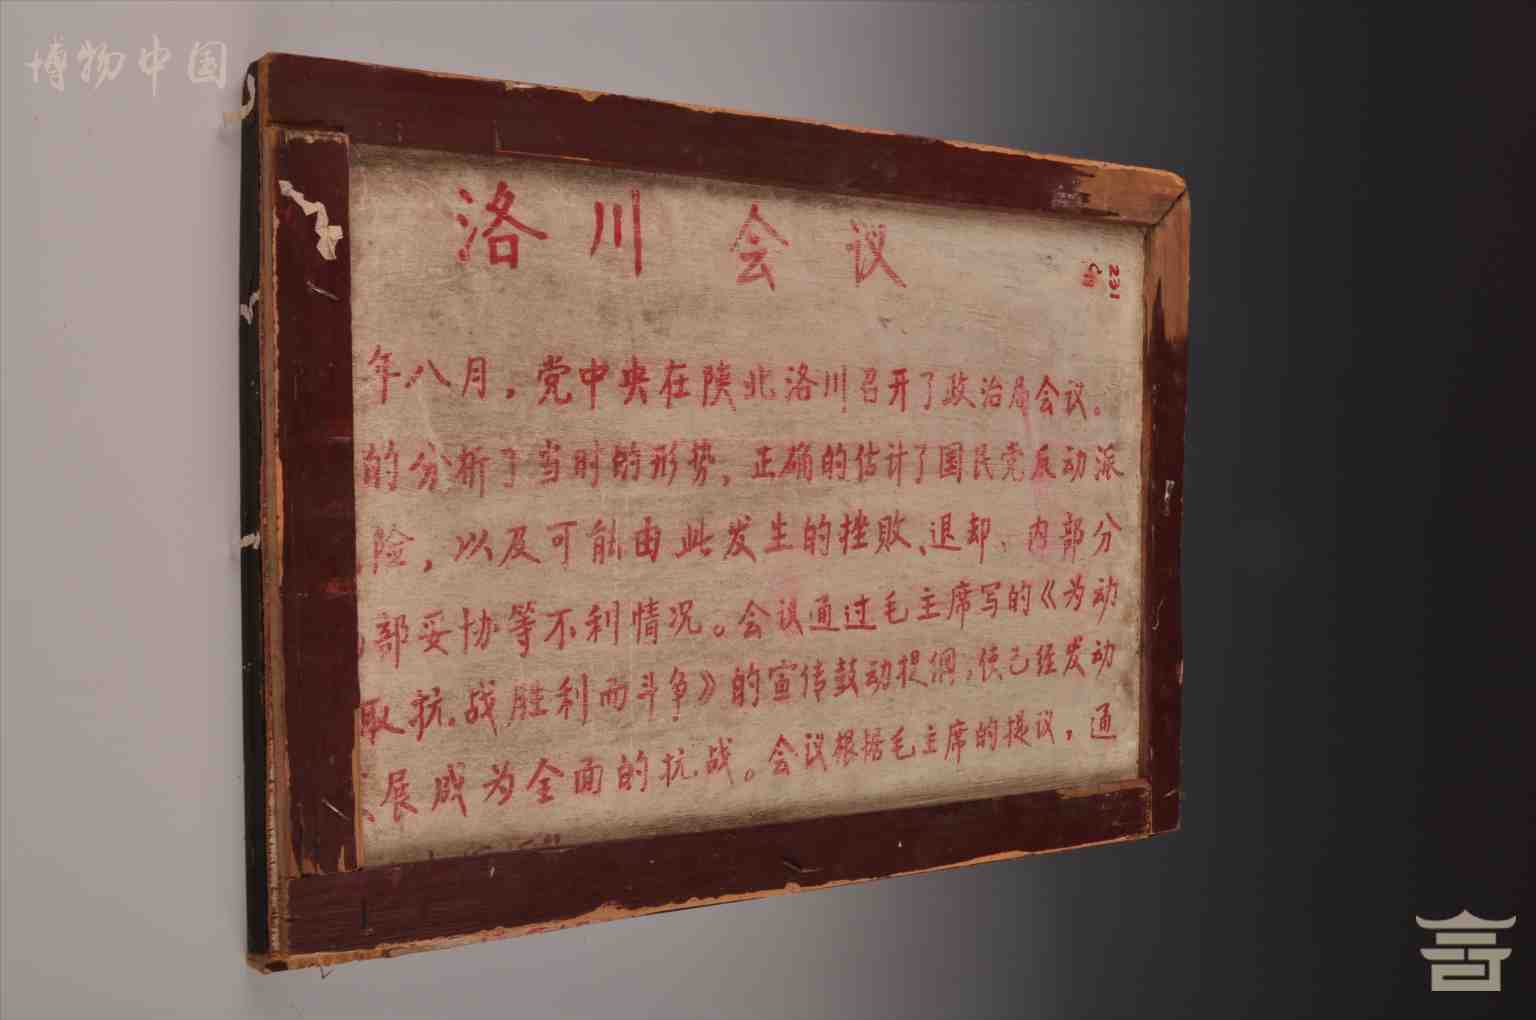 博物中国
洛川会议
231
年八月，党中央在陕北洛川召开了政治局会议。
的分析了当时的形势，正确的估计了国民党反动派
险，以及可能由此发生的挫败、退却、内部分
部妥协等不利情况。会议通过毛主席写的《为动
取抗战胜利而斗争》的宣传鼓动提纲，使已经发动
展成为全面的抗战。会议根据毛主席的提议，通